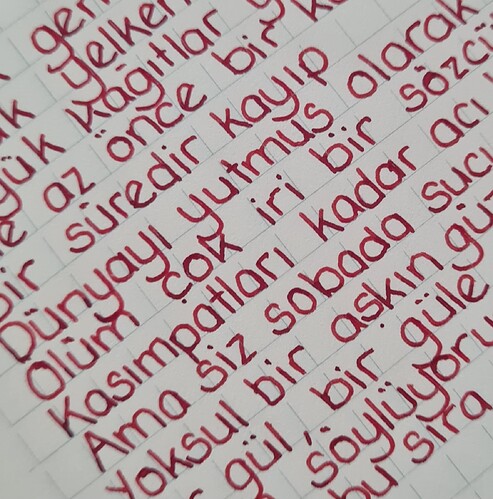 yelken
kağıtlar
az önce bir
süredir kayıp
Dünyayı yutmuş olarak
Ölüm çok iri bir sözcü
Kasımpatları kadar acı
Ama siz sobada sucu
yoksul bir aşkın güz
gül, bir güle
söylüyoru
bu sıra